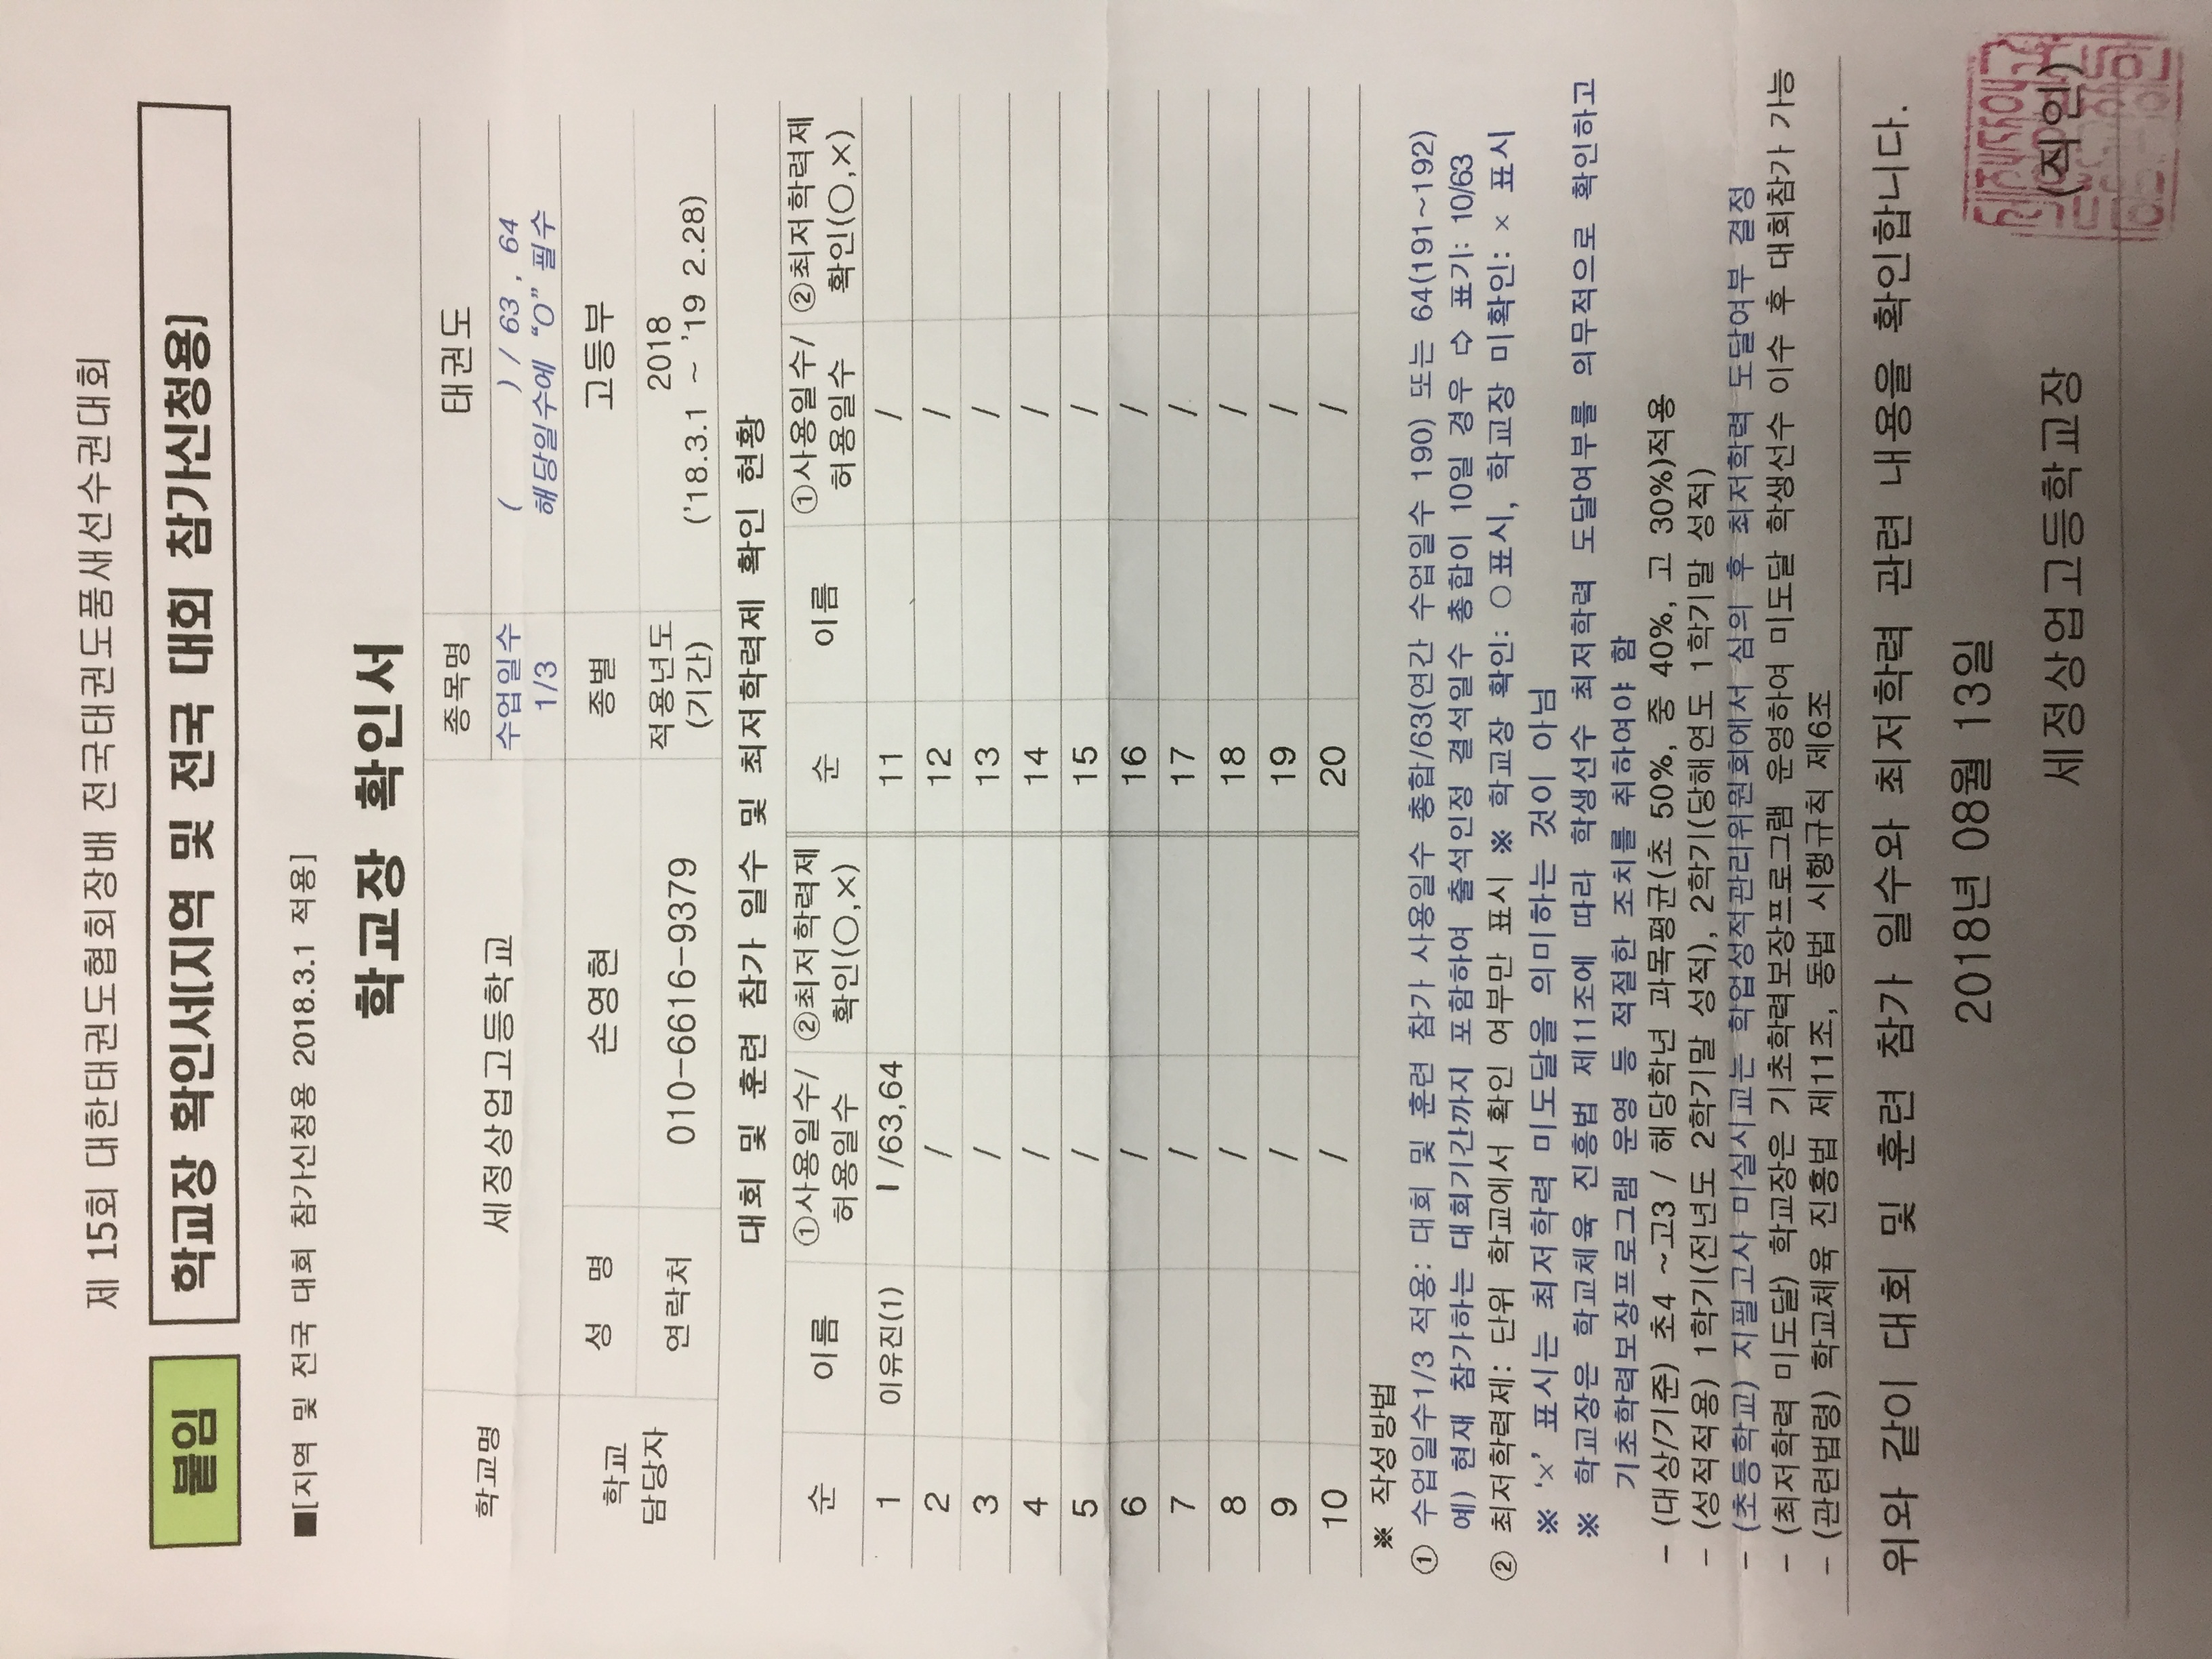 제 15회 대한태권도협회장배 전국태권도품새선수권대회
붙임 학교장 확인서[지역 및 전국 대회 참가신청용]
■[지역 및 전국 대회 참가신청용 2018.3.1 적용]
학교장 확인서
학교명 세정상업고등학교 종목명 태권도
수업일수 1/3 ( ) / 63 , 64
해당일수에 "O" 필수
학교 담당자 성 명 손영현 종별 고등부
연락처 010-6616-9379 적용년도 (기간) 2018
('18.3.1 ~ '19 2.28)
대회 및 훈련 참가 일수 및 최저학력제 확인 현황
순 이름 ①사용일수/ 허용일수 ②최저학력제 확인(○,×) 순 이름 ①사용일수/ 허용일수 ②최저학력제 확인(○,×)
1 이유진(1) 1 /63,64 11 /
2 / 12 /
3 / 13 /
4 / 14 /
5 / 15 /
6 / 16 /
7 / 17 /
8 / 18 /
9 / 19 /
10 / 20 /
※ 작성방법
① 수업일수1/3 적용: 대회 및 훈련 참가 사용일수 총합/63(연간 수업일수 190) 또는 64(191~192)
예) 현재 참가하는 대회기간까지 포함하여 출석인정 결석일수 총합이 10일 경우 ⇨ 표기: 10/63
② 최저학력제: 단위 학교에서 확인 여부만 표시 ※ 학교장 확인: ○표시, 학교장 미확인: × 표시
※ '×' 표시는 최저학력 미도달을 의미하는 것이 아님
※ 학교장은 학교체육 진흥법 제11조에 따라 학생선수 최저학력 도달여부를 의무적으로 확인하고
기초학력보장프로그램 운영 등 적절한 조치를 취하여야 함
- (대상/기준) 초4 ~고3 / 해당학년 과목평균(초 50%, 중 40%, 고 30%)적용
- (성적적용) 1학기(전년도 2학기말 성적), 2학기(당해연도 1학기말 성적)
- (초등학교) 지필고사 미실시교는 학업성적관리위원회에서 심의 후 최저학력 도달여부 결정
- (최저학력 미도달) 학교장은 기초학력보장프로그램 운영하여 미도달 학생선수 이수 후 대회참가 가능
- (관련법령) 학교체육 진흥법 제11조, 동법 시행규칙 제6조
위와 같이 대회 및 훈련 참가 일수와 최저학력 관련 내용을 확인합니다.
2018년 08월 13일
세정상업고등학교장 (직인)